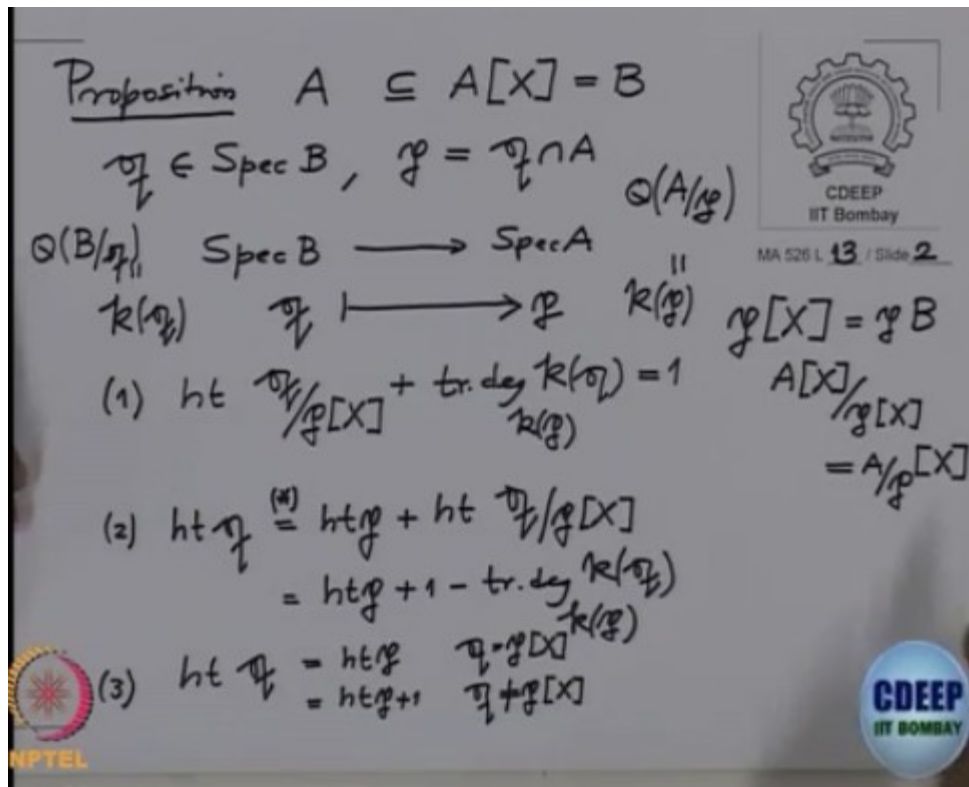 Proposition A ⊆ A[X] = B
𝔮 ∈ Spec B, 𝔭 = 𝔮 ∩ A
Q(A/𝔭)
CDEEP
IIT Bombay
MA 526 L 13 / Slide 2
Q(B/𝔮) Spec B ⟶ Spec A
∥ ∥
k(𝔮) 𝔮 ⟼ 𝔭 k(𝔭) 𝔭[X] = 𝔭B
(1) ht 𝔮/𝔭[X] + tr.deg k(𝔮) = 1
k(𝔭)
A[X]/𝔭[X]
= A/𝔭[X]
(2) ht 𝔮 (*)= ht 𝔭 + ht 𝔮/𝔭[X]
= ht 𝔭 + 1 - tr.deg k(𝔮)
k(𝔭)
(3) ht 𝔮 = ht 𝔭 𝔮 = 𝔭[X]
= ht 𝔭+1 𝔮 ≠ 𝔭[X]
NPTEL
CDEEP
IIT BOMBAY